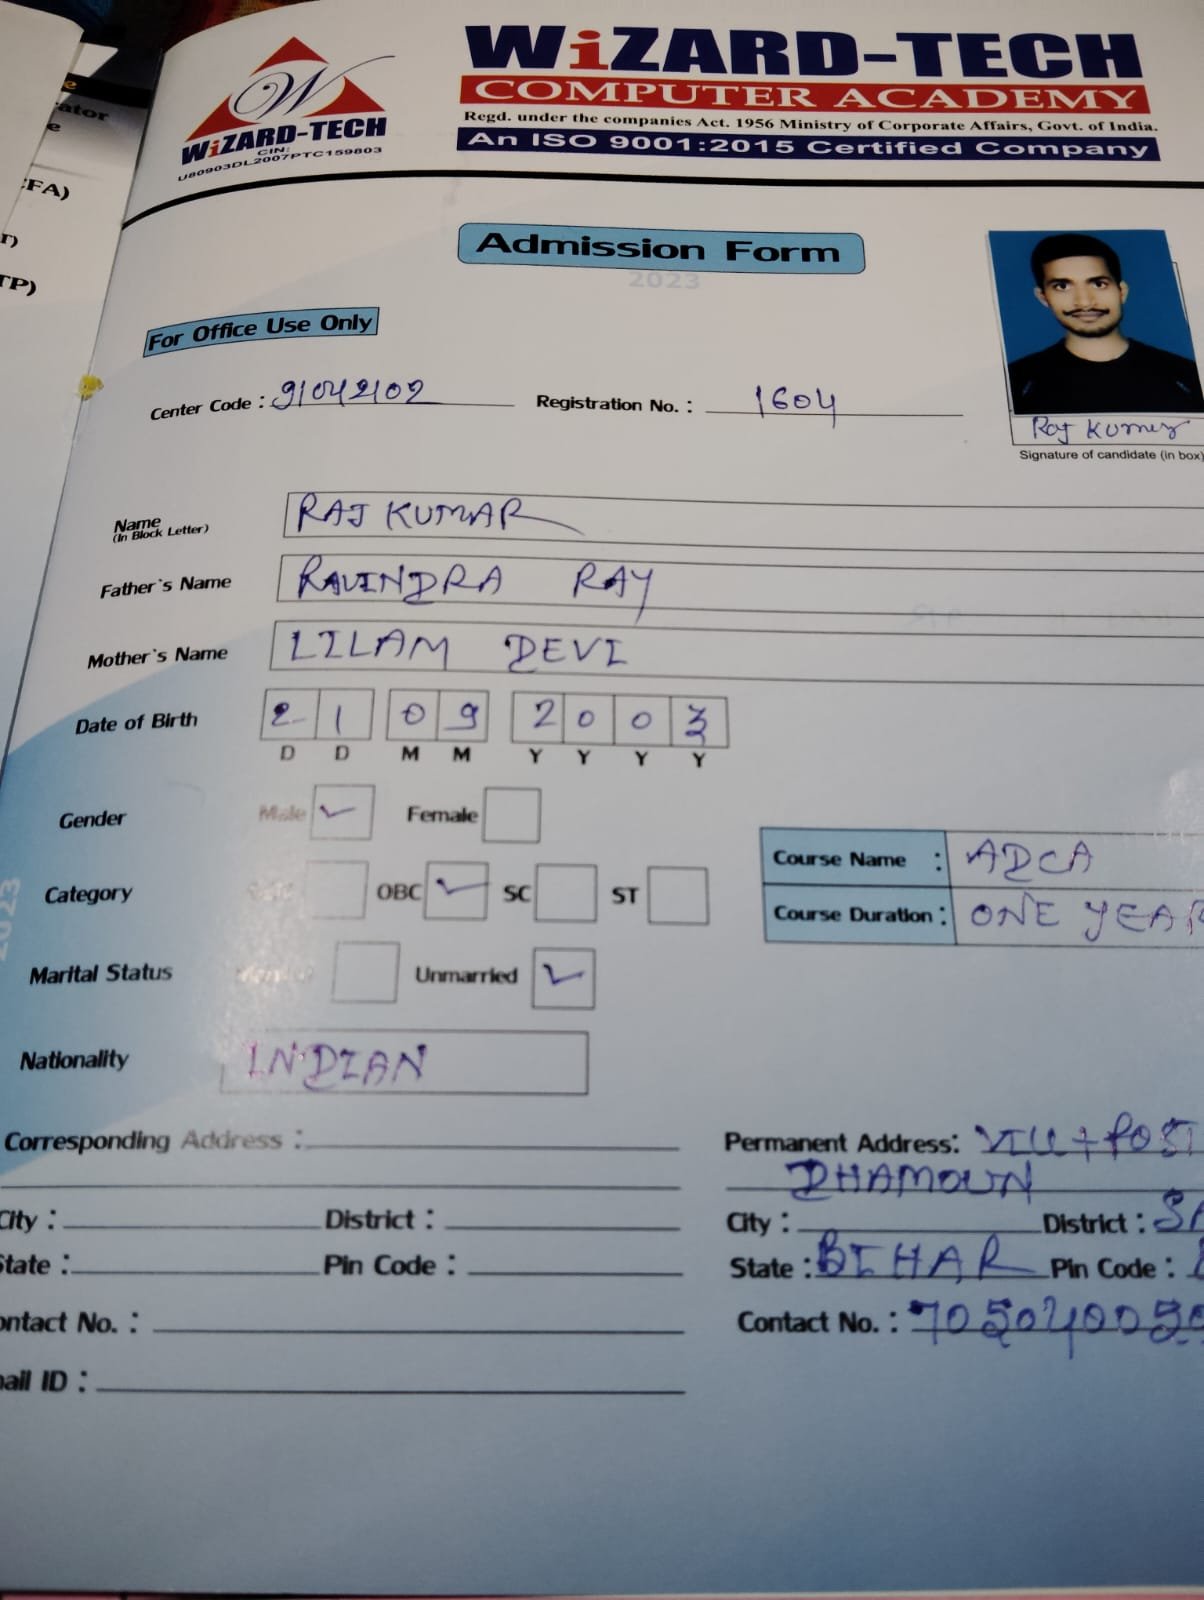 WiZARD-TECH
COMPUTER ACADEMY
Regd. under the companies Act. 1956 Ministry of Corporate Affairs, Govt. of India.
An ISO 9001:2015 Certified Company
W
WiZARD-TECH
CIN:
U80903DL2007PTC159803
ator
e
FA)
TP)
Admission Form
2023
For Office Use Only
Center Code : 91042102 Registration No. : 1604
Raj Kumar
Signature of candidate (in box)
Name RAJ KUMAR
(In Block Letter)
Father`s Name RAVINDRA RAY
Mother`s Name LILAM DEVI
Date of Birth 21 09 2003
D D M M Y Y Y Y
Gender Male ✓ Female
Course Name : ADCA
Category OBC ✓ SC ST
Course Duration : ONE YEAR
Marital Status Unmarried ✓
2023
Nationality INDIAN
Corresponding Address : Permanent Address: VILL + POST
DHAMOUN
City : District : City : District : SA
State : Pin Code : State : BIHAR Pin Code :
ontact No. : Contact No. :
ail ID :